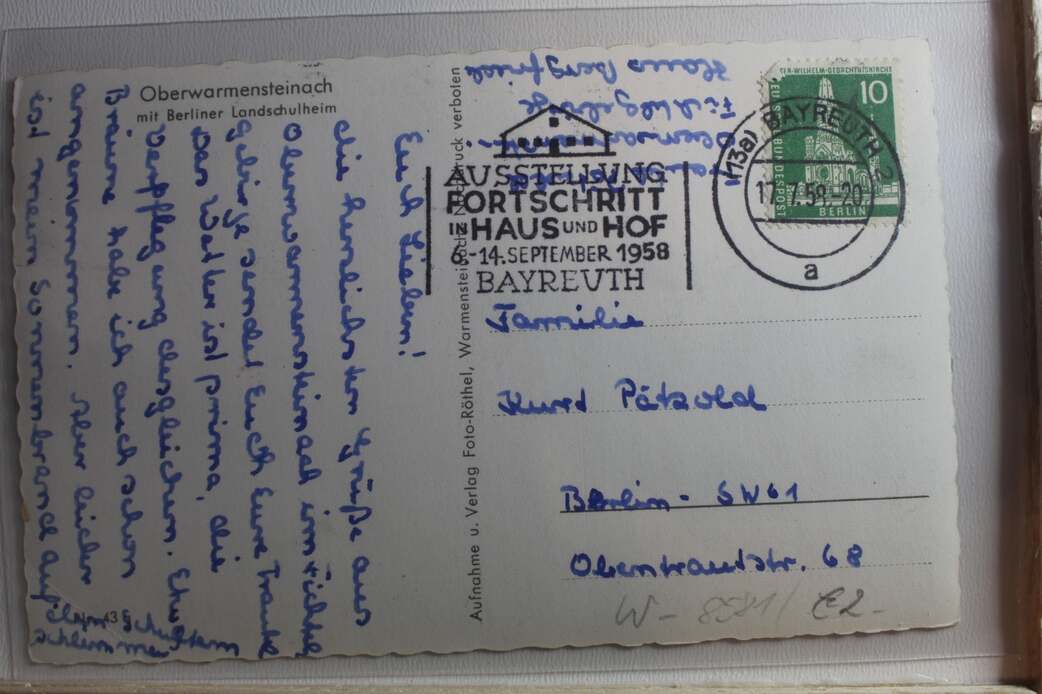 Oberwarmensteinach
mit Berliner Landschulheim
Euch Lieben!
die herrlichsten Grüße aus
Oberwarmensteinach im Fichtel
gebirge sendet Euch Eure Traute
Das Wetter ist prima, die
Verpflegung desgleichen. Etwas
Bräune habe ich auch schon
angenommen. Aber leider
ist mein Sonnenbrand auf
dem
schlimmer
Nr. 43
Aufnahme u. Verlag Foto-Röthel, Warmensteinach Nachdruck verboten
Fichtelgebirge
Haus Bergfried
AUSSTELLUNG
FORTSCHRITT
IN HAUS UND HOF
6.-14. SEPTEMBER 1958
BAYREUTH
(13a) BAYREUTH 2
17.7.58.-20
a
KAISER-WILHELM-GEDÄCHTNISKIRCHE
10
DEUTSCHE BUNDESPOST
BERLIN
Familie
Kurt Pätzold
Berlin - SW61
Obentrautstr. 68
W -